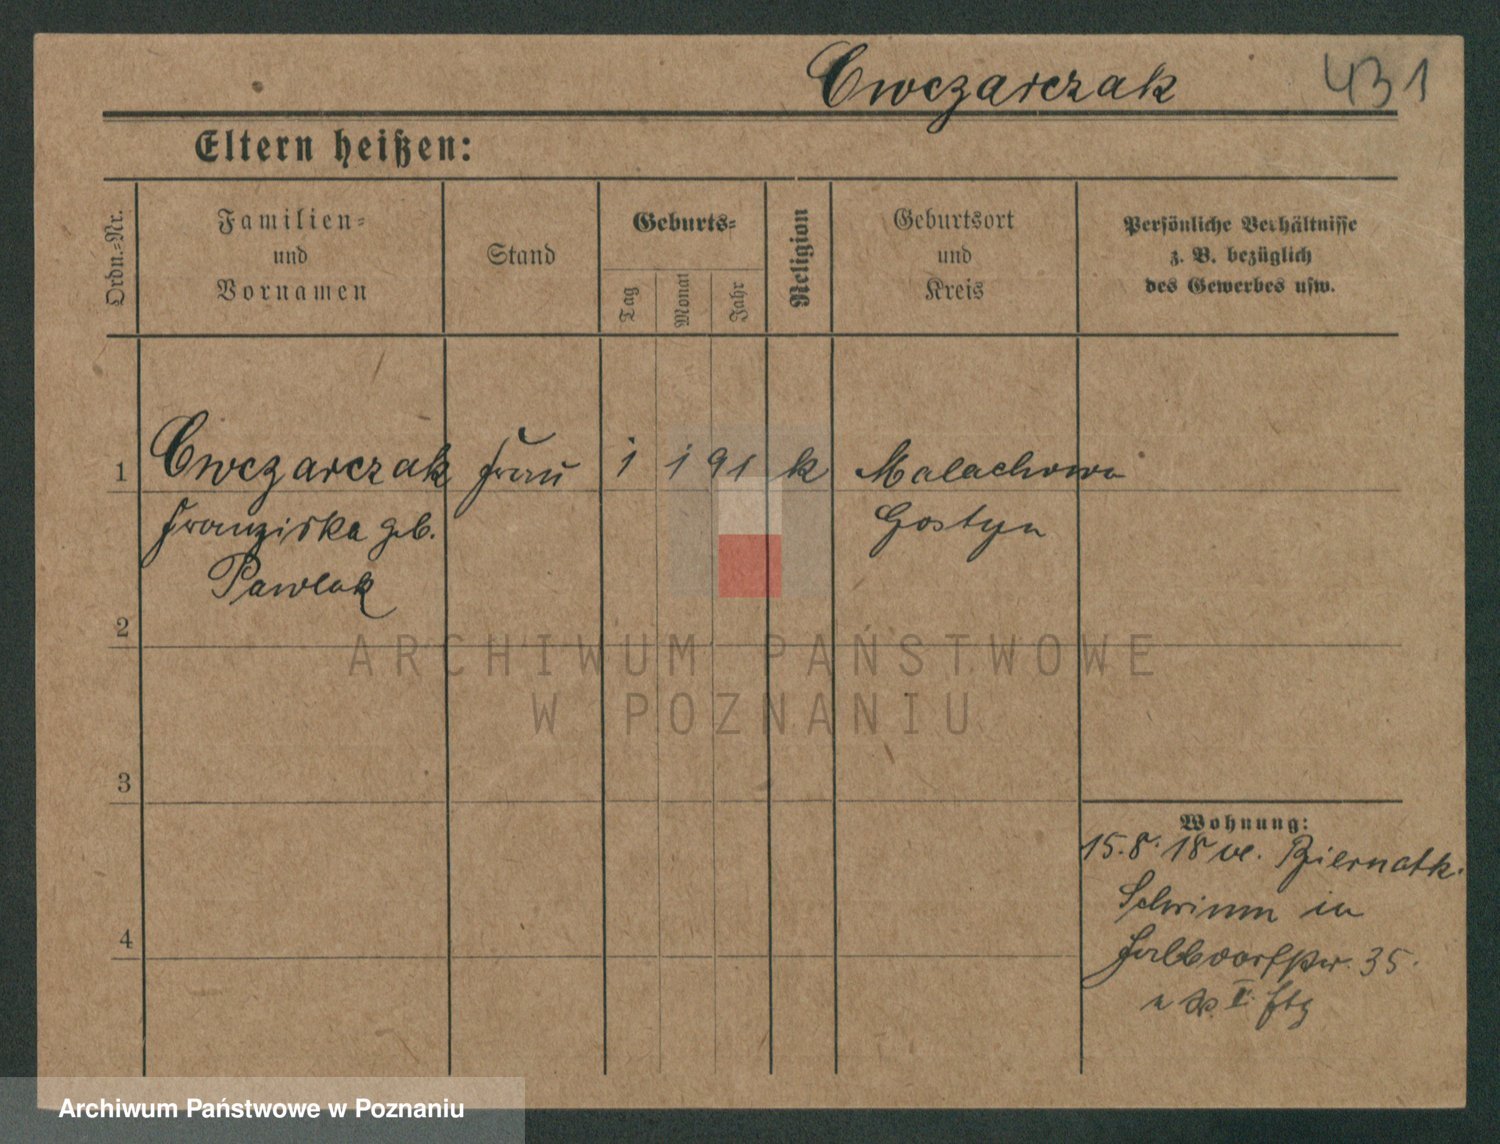 Owczarczak 431
Eltern heißen:
Ordn.-Nr.
Familien-
und
Vornamen
Stand
Geburts-
Tag
Monat
Jahr
Religion
Geburtsort
und
Kreis
Persönliche Verhältnisse
z. B. bezüglich
des Gewerbes usw.
1 Owczarczak Frau 1 1 91 k Malachowo
Franziska geb. Gostyn
Pawlak
2
3
4
Wohnung:
15.8.18 Biernatk.
Schrimm in
Halbdorfstr. 35.
II
ARCHIWUM PAŃSTWOWE
W POZNANIU
Archiwum Państwowe w Poznaniu